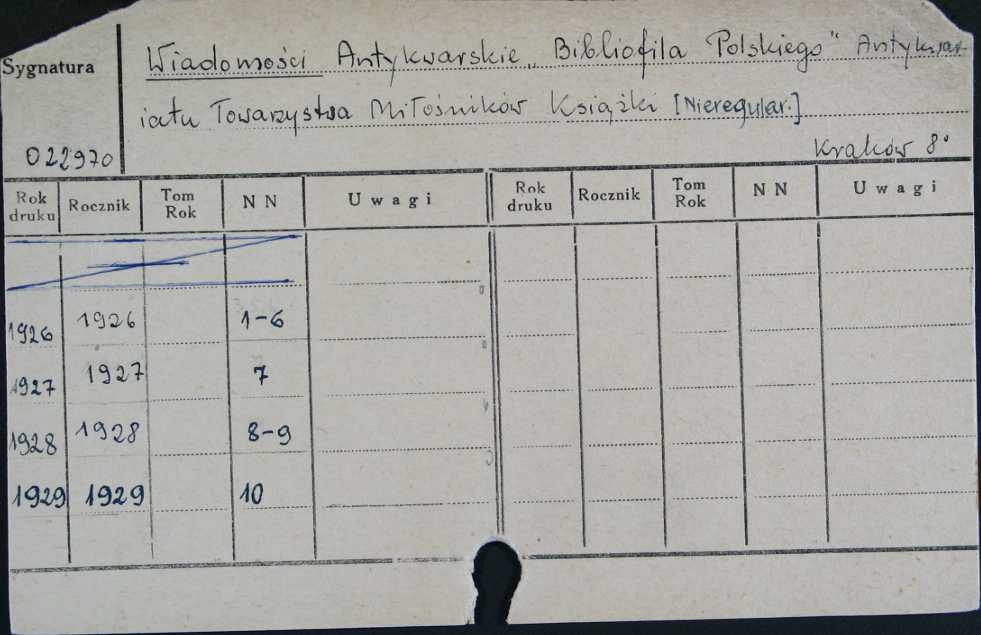 Sygnatura
Wiadomości Antykwarskie „Bibliofila Polskiego" Antykwar-
iatu Towarzystwa Miłośników Książki [Nieregular.]
022970
Kraków 8°
Rok druku Rocznik Tom Rok NN Uwagi Rok druku Rocznik Tom Rok NN Uwagi
1926 1926 1-6
1927 1927 7
1928 1928 8-9
1929 1929 10